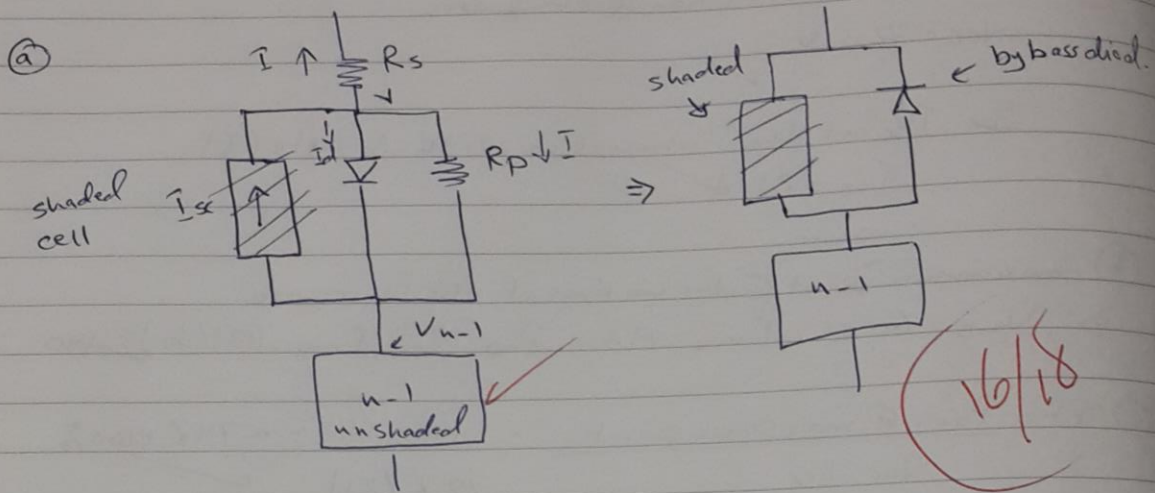 a
I ↑ Rs
V
shaded cell
Isc ↑
Id
Rp ↓ I
Vn-1
n-1
unshaded
⇒
shaded
bybass diod.
n-1
16/18